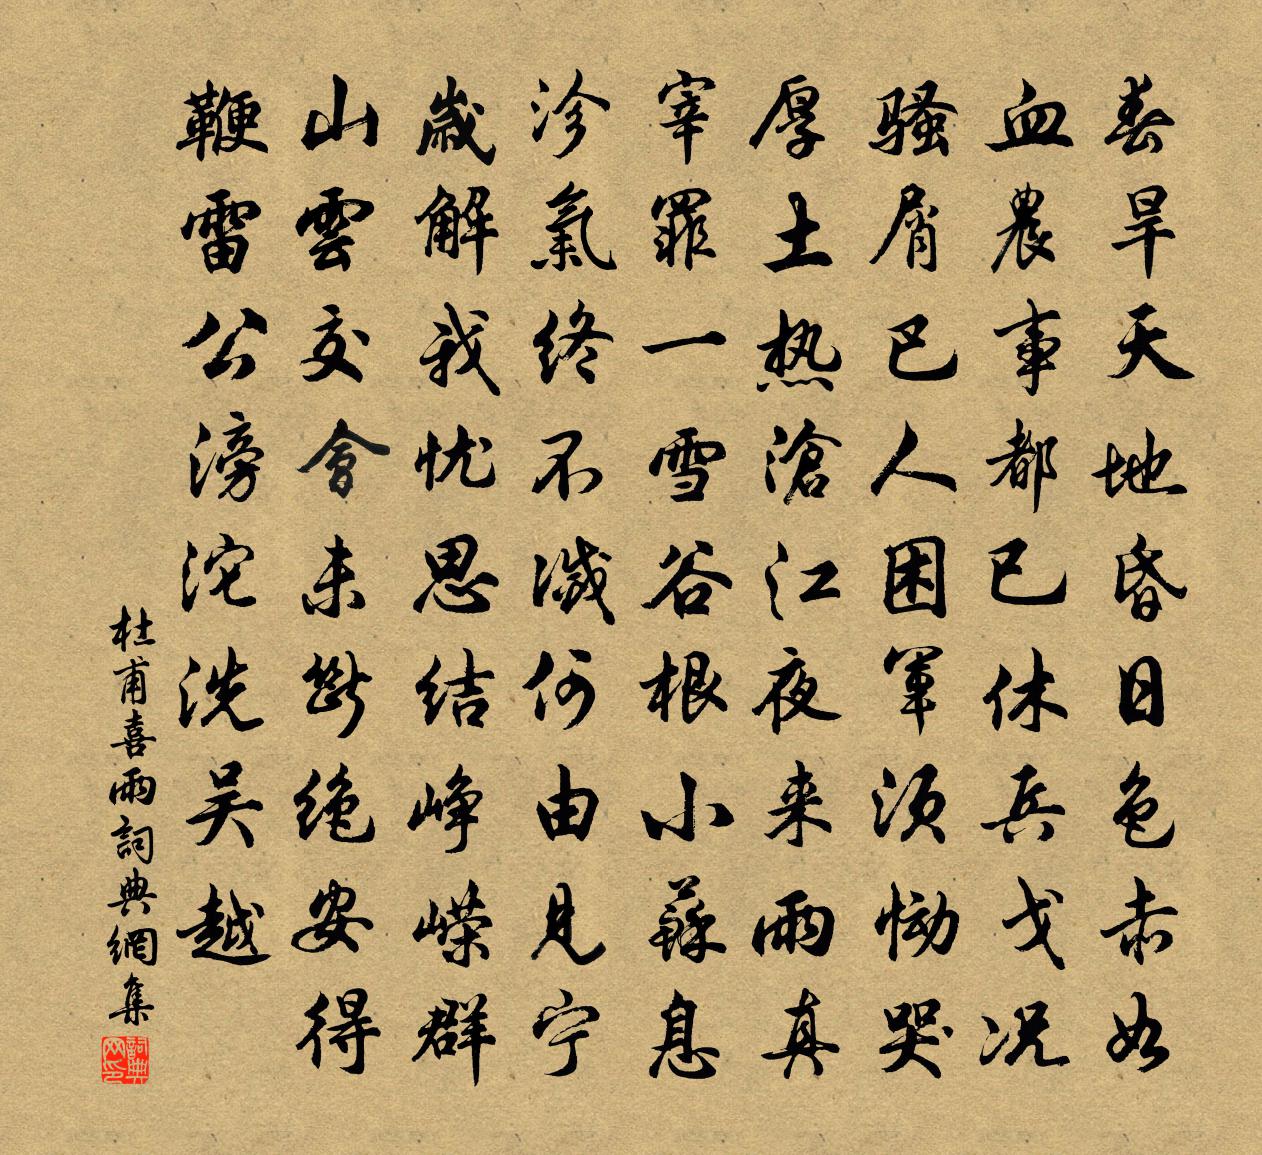 春旱天地昏日色赤如
血農事都已休兵戈况
騷屑巴人困軍須慟哭
厚土热滄江夜来雨真
宰罪一雪谷根小蘇息
沴氣終不滅何由見宁
嵗解我忧思結峥嵘群
山雲交會未斷绝安得
鞭雷公滂沱洗吴越
杜甫喜雨詞典網集
詞典网印